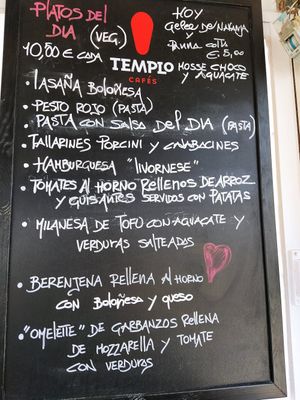 PLATOS DEL DIA (VEG.)
10,00 € CADA
TEMPLO
CAFÉS
HOY
GELEE DE NARANJA Y
PANNA COTTA
€ 5,00
MOSSE CHOCO
Y AGUACATE
• LASAÑA BOLOÑESA
• PESTO ROJO (PASTA)
• PASTA CON SALSA DEL DIA (PASTA)
• TALLARINES PORCINI Y CALABACINES
• HAMBURGUESA "LIVORNESE"
• TOMATES AL HORNO RELLENOS DE ARROZ
Y GUISANTES SERVIDOS CON PATATAS
• MILANESA DE TOFU CON AGUACATE Y
VERDURAS SALTEADAS
• BERENJENA RELLENA AL HORNO
CON BOLOÑESA Y QUESO
• "OMELETTE" DE GARBANZOS RELLENA
DE MOZZARELLA Y TOMATE
CON VERDURAS